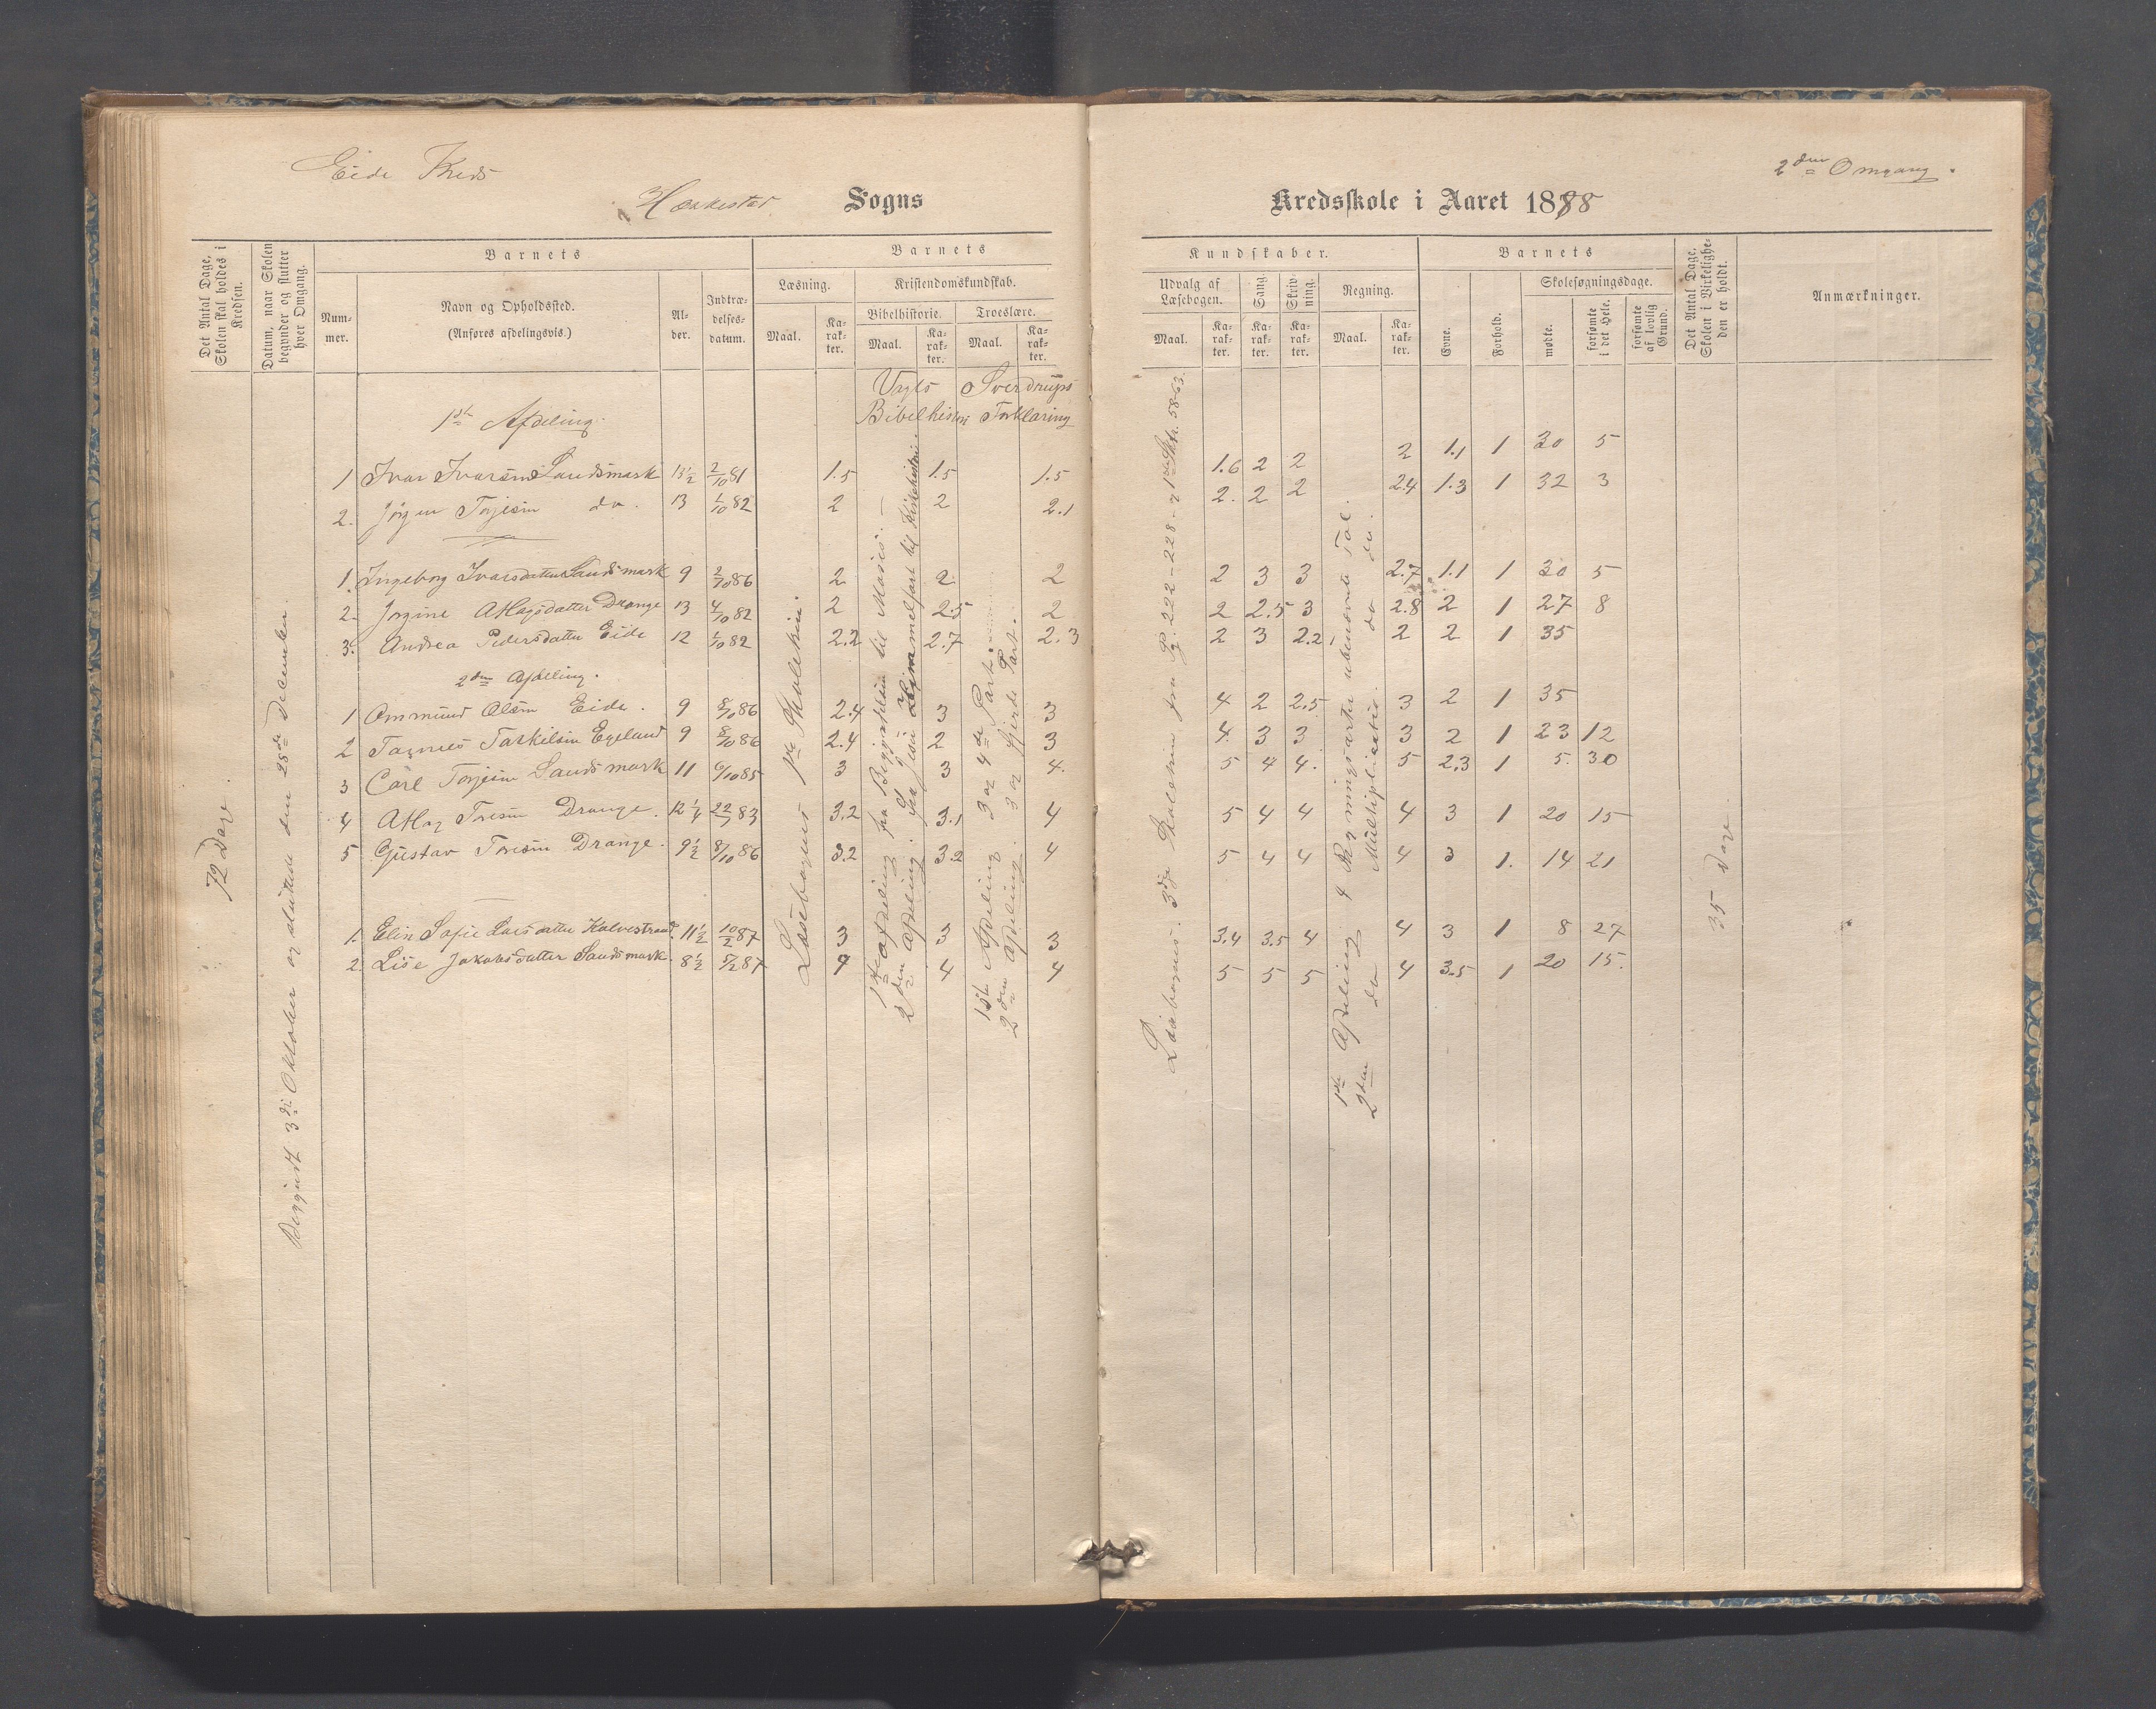 Eide Kreds
Sogns
Kredsskole i Aaret 1888
2den Omgang.
Det Antal Dage, Skolen skal holdes i Kredsen.
Datum, naar Skolen begynder og slutter hver Omgang.
Barnets
Num-mer.
Navn og Opholdssted.
(Anføres afdelingsvis.)
Al-der.
Indtræ-delses-datum.
Barnets
Læsning.
Maal.
Ka-rak-ter.
Kristendomskundskab.
Bibelhistorie.
Maal.
Ka-rak-ter.
Troeslære.
Maal.
Ka-rak-ter.
Kundskaber.
Udvalg af Læsebogen.
Maal.
Ka-rak-ter.
Sang.
Ka-rak-ter.
Skriv-ning.
Ka-rak-ter.
Regning.
Maal.
Ka-rak-ter.
Barnets
Evne.
Forhold.
Skolesøgningsdage.
mødte.
forsømte i det Hele.
forsømte af lovlig Grund.
Det Antal Dage, Skolen i Virkelighe-den er holdt.
Anmærkninger.
72 Dage.
Begyndt 3die Oktober og sluttede den 28de December.
Vogts Sverdrups
Bibelhistorie Forklaring
1ste Afdeling.
1 Ivar Ivarsen Sandsmark 13½ 2/10 81 1.5 1.5 1.5 1.6 2 2 2 1.1 1 30 5
2. Jørgen Torjesen do. 13 1/10 82 2 2 2.1 2. 2 2 2.4 1.3 1 32 3
1. Ingeborg Ivarsdatter Sandsmark 9 2/10 86 2 2 2 2 3 3 2.7 1.1 1 30 5
2. Jorgine Atlagsdatter Drange 13 4/10 82 2 2.5 2 2 2.5 3 2.8 2 1 27 8
3. Andrea Pedersdatter Eide 12 1/10 82 2.2 2.7 2.3 2 3 2.2 2 2 1 35
2den Afdeling.
1 Ommund Olsen Eide. 9 8/10 86 2.4 3 3 4 2 2.5 3 2 1 35
2 Tarkelsen Egeland 9 8/10 86 2.4 2 3 4. 3 3 3 2 1 23 12
3 Carl Torjesen Sandsmark 11 6/10 85 3 3 4. 5 4 4. 5 2.3 1 5. 30
4 Atlag Toresen Drange. 12¼ 22/7 83 3.2 3.1 4 5 4 4 4 3 1 20 15
5 Gustav Toresen Drange. 9½ 8/10 86 3.2 3.2 4 5 4 4 4 3 1. 14 21
1. Elen Sofie Larsdatter Kalvestrand. 11½ 10/2 87 3 3 3 3.4 3.5 4 4 3 1 8 27
2. Lise Jakobsdatter Sandsmark. 8½ 5/2 87 4 4 4 5 5 5 4 3.5 1 20 15.
Læsebogens 1ste Skoletrin.
1ste Afdeling fra Begyndelsen til Moses. —
2den Afdeling. fra Jesu Himmelfart til Kirkehistorie.
1ste Afdeling 3 og 4de Part.
2den Afdeling. 3 og fjerde Part.
Læsebogens. 3die Skoletrin fra Pg. 222-228.
1ste Afdeling 4 Regningsarter ubenævnte Tal.
2den do Multiplication. do do.
35 Dage.